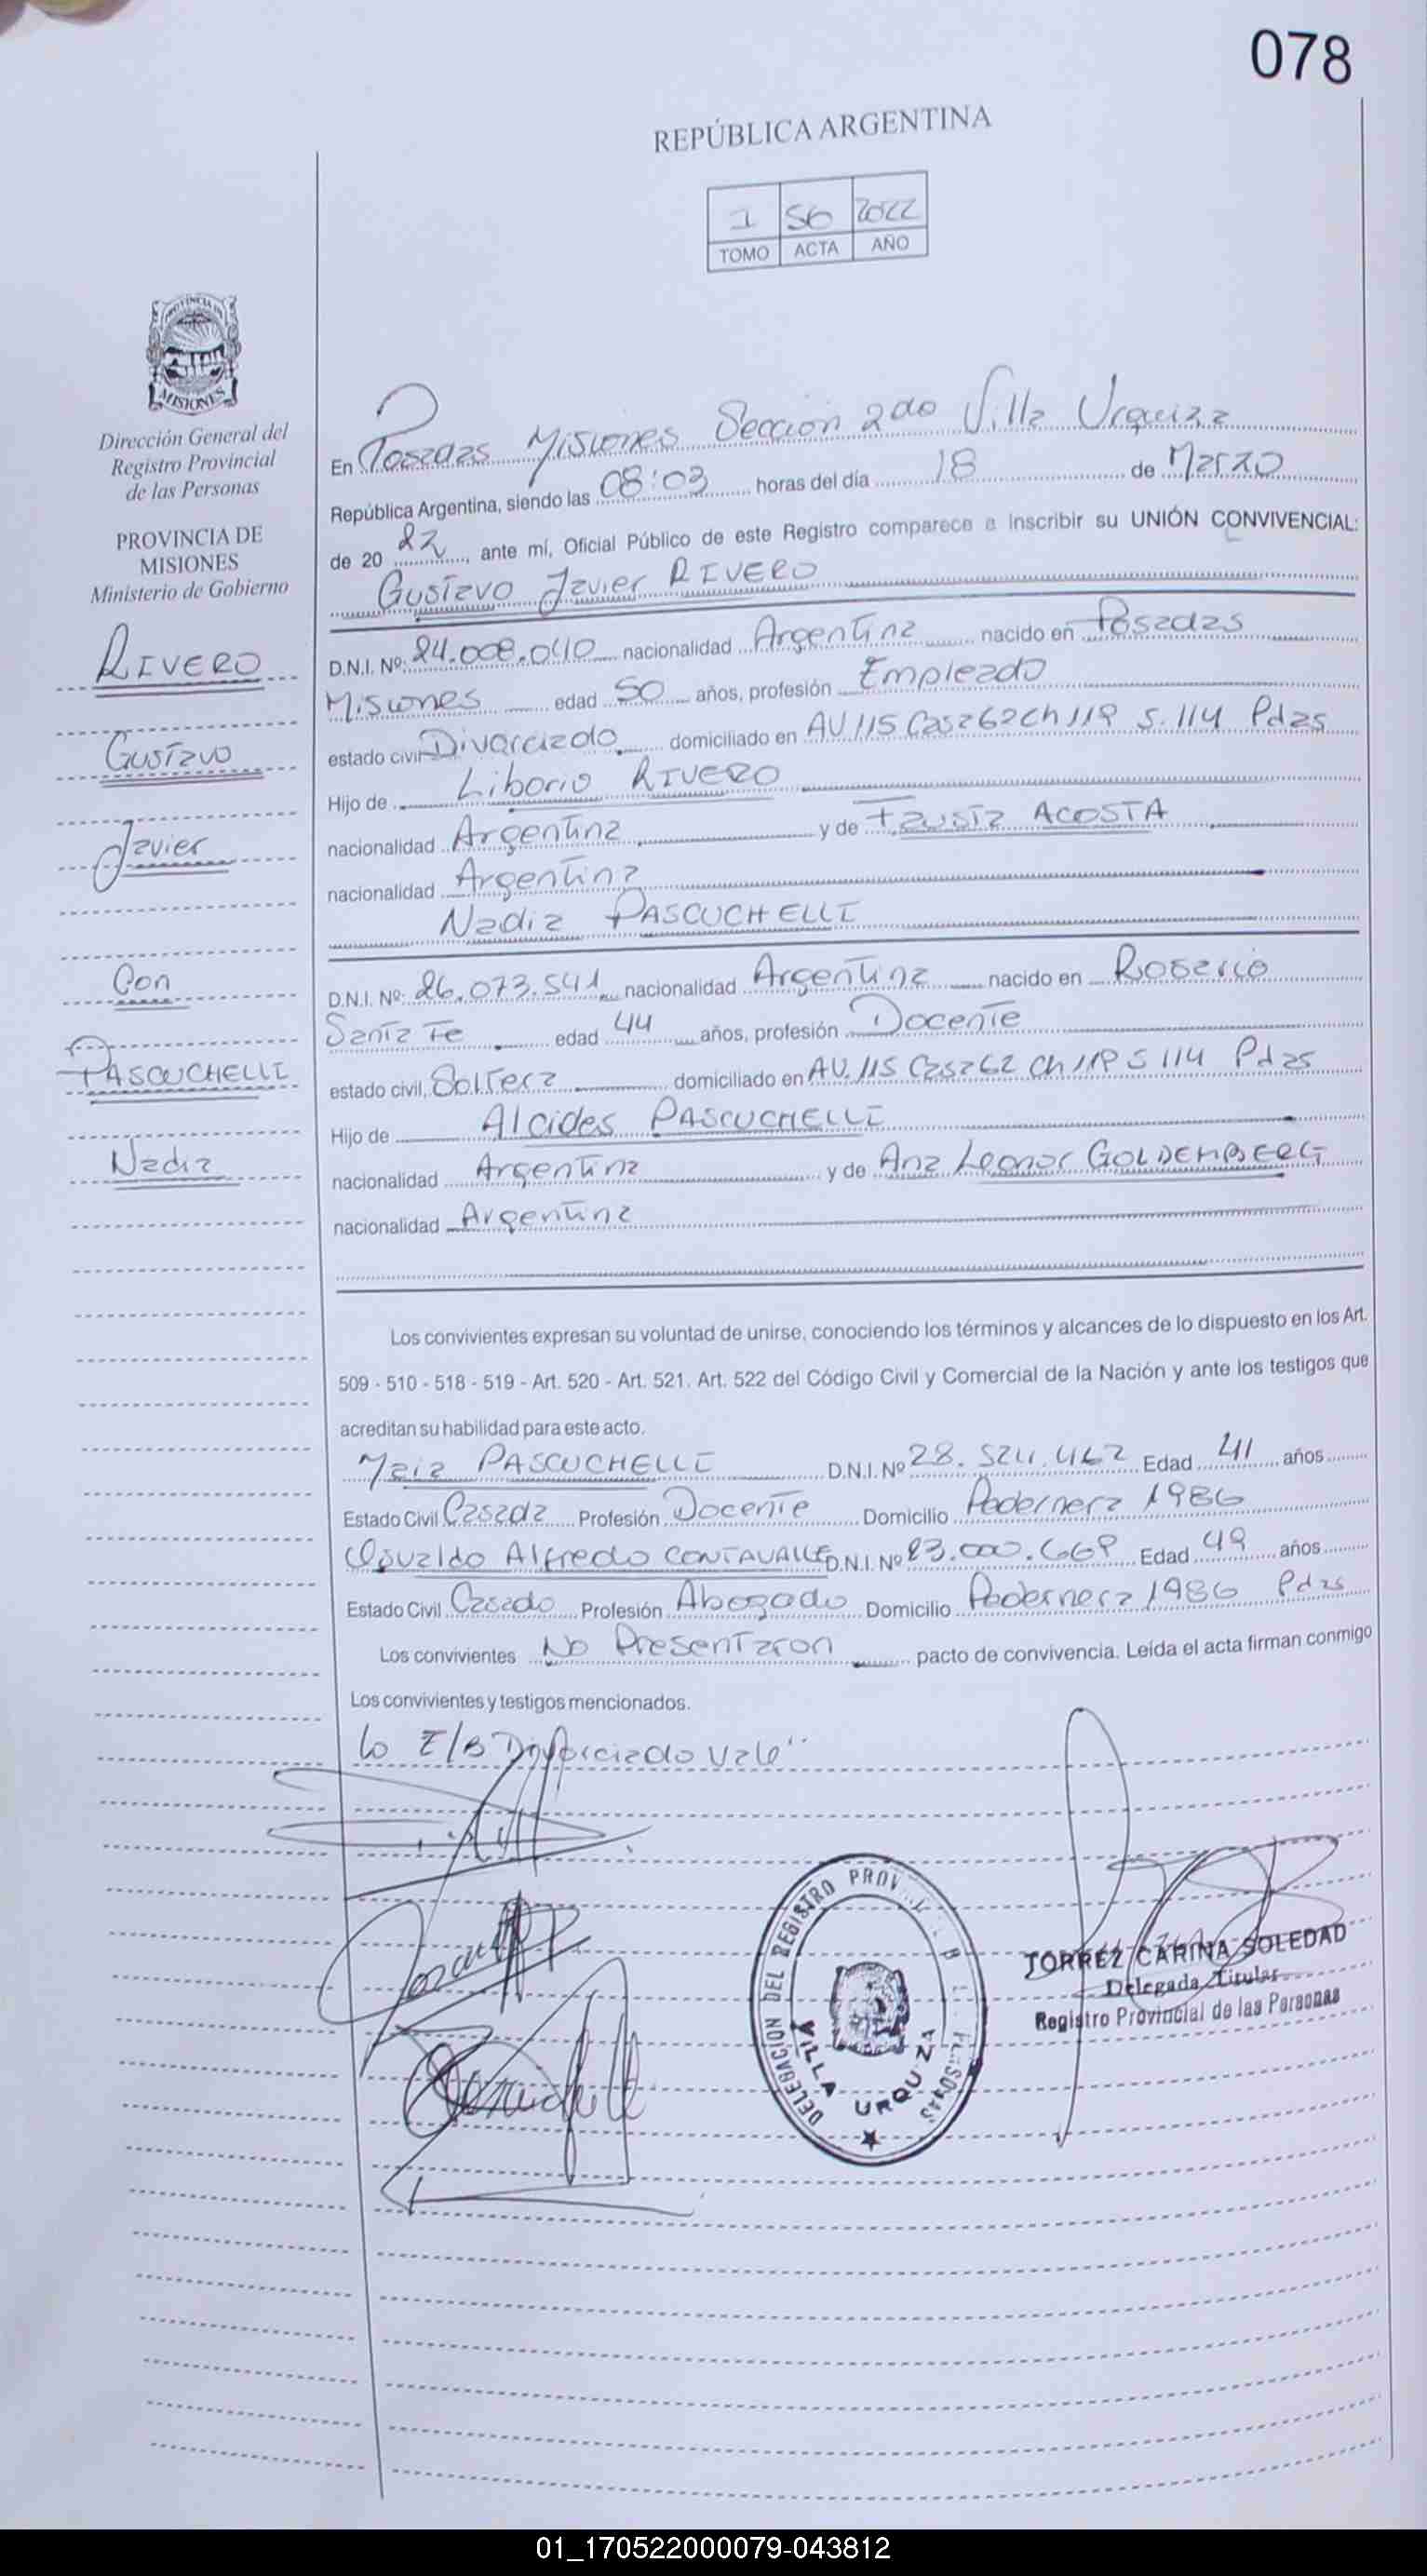 078
REPÚBLICA ARGENTINA
1 56 2022
TOMO ACTA AÑO
PROVINCIA DE
MISIONES
Dirección General del
Registro Provincial
de las Personas
PROVINCIA DE
MISIONES
Ministerio de Gobierno
RIVERO
Gustavo
Javier
Con
PASCUCHELLI
Nadia
En Posadas Misiones Sección 2do Villa Urquiza
República Argentina, siendo las 08:03 horas del día 18 de Marzo
de 20 22, ante mí, Oficial Público de este Registro comparece a Inscribir su UNIÓN CONVIVENCIAL:
Gustavo Javier RIVERO
D.N.I. Nº: 24.008.040 nacionalidad Argentina nacido en Posadas
Misiones edad 50 años, profesión Empleado
estado civil Divorciado domiciliado en AV 115 Casa 62 Ch 119 S. 114 Pdas
Hijo de Liborio RIVERO
nacionalidad Argentina y de Fausta ACOSTA
nacionalidad Argentina
Nadia PASCUCHELLI
D.N.I. Nº: 26.073.541 nacionalidad Argentina nacido en Rosario
Santa Fe edad 44 años, profesión Docente
estado civil, Soltera domiciliado en AV. 115 Casa 62 Ch 119 S 114 Pdas
Hijo de Alcides PASCUCHELLI
nacionalidad Argentina y de Ana Leonor GOLDEMBERG
nacionalidad Argentina
Los convivientes expresan su voluntad de unirse, conociendo los términos y alcances de lo dispuesto en los Art.
509 - 510 - 518 - 519 - Art. 520 - Art. 521. Art. 522 del Código Civil y Comercial de la Nación y ante los testigos que
acreditan su habilidad para este acto.
PASCUCHELLI D.N.I. Nº 28.524.462 Edad 41 años
Estado Civil Casada Profesión Docente Domicilio Pedernera 1986
Osvaldo Alfredo CONTAVALLE D.N.I. Nº 23.000.669 Edad 49 años
Estado Civil Casado Profesión Abogado Domicilio Pedernera 1986 Pdas
Los convivientes No Presentaron pacto de convivencia. Leída el acta firman conmigo
Los convivientes y testigos mencionados.
Lo E/B Divorciado Vale"
DELEGACIÓN DEL REGISTRO PROV
VILLA URQUIZA
TORREZ CARINA SOLEDAD
Delegada Titular
Registro Provincial de las Personas
01_170522000079-043812